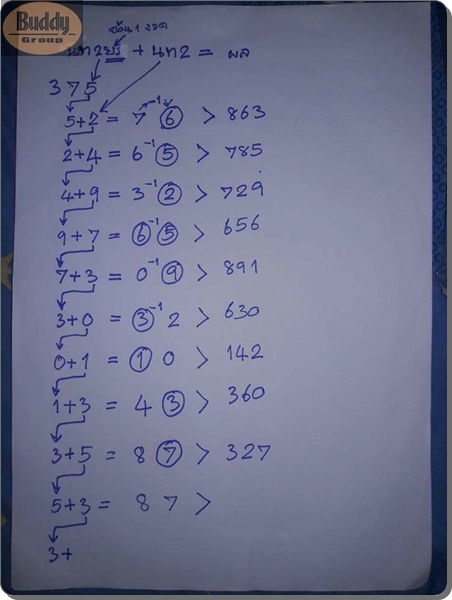 Buddy
Group
ย้อน 1 งวด
+ นท2 = ผล
375
5+2 = 7 -1 6 > 863
2+4 = 6 -1 5 > 785
4+9 = 3 -1 2 > 729
9+7 = 6 -1 5 > 656
7+3 = 0 -1 9 > 891
3+0 = 3 -1 2 > 630
0+1 = 1 0 > 142
1+3 = 4 3 > 360
3+5 = 8 7 > 327
5+3 = 8 7 >
3+